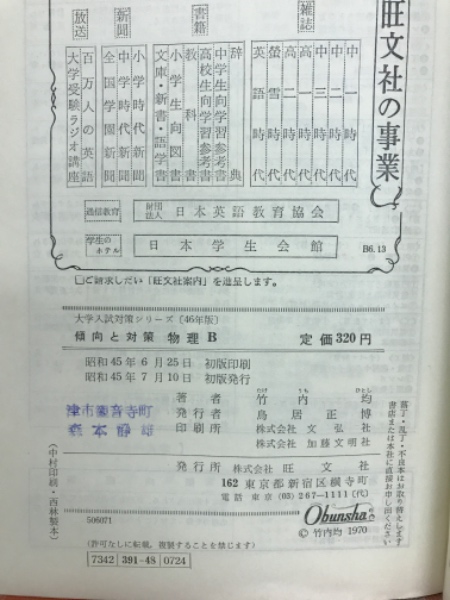 旺文社の事業
雑誌
中一時代
中二時代
中三時代
高一時代
高二時代
螢雪時代
英語時代
書籍
辞典
中学生向学習参考書
高校生向学習参考書
教科書
小学生向図書
文庫・新書・語学書
新聞
小学時代新聞
中学時代新聞
全国学園新聞
放送
百万人の英語
大学受験ラジオ講座
通信教育 財団法人 日本英語教育協会
学生のホテル 日本学生会館
B6.13
ご請求しだい「旺文社案内」を進呈します。
大学入試対策シリーズ〔46年版〕
傾向と対策 物理B 定価320円
昭和45年6月25日 初版印刷
昭和45年7月10日 初版発行
著者 竹内均
たけ うち ひとし
発行者 鳥居正博
印刷所 株式会社 文弘社
株式会社 加藤文明社
発行所 株式会社 旺文社
162 東京都新宿区横寺町
電話 東京(03)267-1111(代)
Obunsha
© 竹内均 1970
506071
(許可なしに転載,複製することを禁じます)
7342 391-48 0724
落丁・乱丁・不良本はお取り替えします
書店または本社に直接お申し出ください
(中村印刷・西林製本)